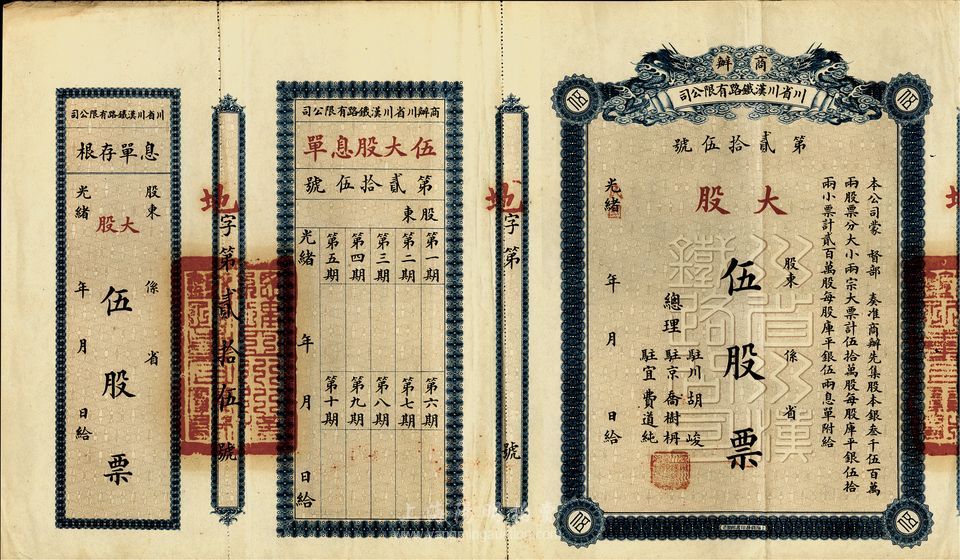 商辦
川省川漢鐵路有限公司
第貳拾伍號
大股
本公司蒙 督部 奏准商辦先集股本銀叁千伍百萬
兩股票分大小兩宗大票計伍拾萬股每股庫平銀伍拾
兩小票計貳百萬股每股庫平銀伍兩息單附給
股東 係 省
伍股票
總理
駐川胡峻
駐京喬樹枏
駐宜費道純
光緒 年 月 日給
川省川漢
鐵路公司
地字第 號
商辦川省川漢鐵路有限公司
伍大股息單
第貳拾伍號
股東
第一期
第二期
第三期
第四期
第五期
第六期
第七期
第八期
第九期
第十期
光緒 年 月 日給
地字第貳拾伍號
川省川漢鐵路有限公司
息單存根
股東 係 省
大股
伍股票
光緒 年 月 日給